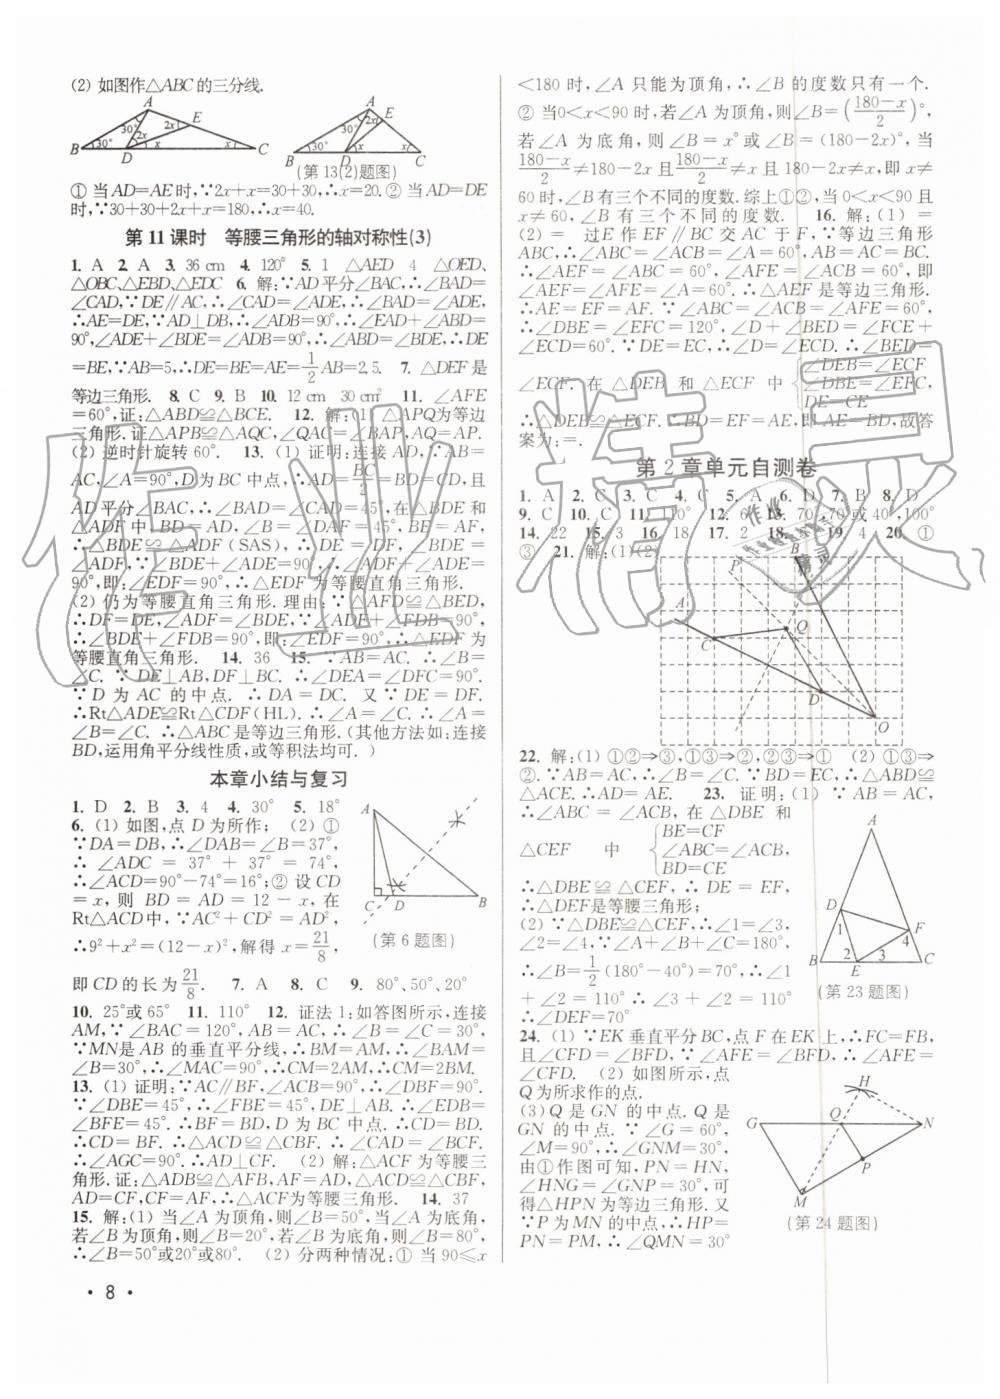 (2) 如图作△ABC的三分线.
A E 30° 2x 2x 30° x x B D C
A E 2x 30° 30° x x B D C
(第13(2)题图)
① 当AD=AE时,∵2x+x=30+30,∴x=20.② 当AD=DE
时,∵30+30+2x+x=180,∴x=40.
第 11 课时 等腰三角形的轴对称性(3)
1. A 2. A 3. 36 cm 4. 120° 5. 1 △AED 4 △OED、
△OBC、△EBD、△EDC 6. 解:∵AD平分∠BAC,∴∠BAD=
∠CAD,∵DE∥AC,∴∠CAD=∠ADE,∴∠BAD=∠ADE,
∴AE=DE,∵AD⊥DB,∴∠ADB=90°,∴∠EAD+∠ABD=
90°,∠ADE+∠BDE=∠ADB=90°,∴∠ABD=∠BDE,∴DE
=BE,∵AB=5,∴DE=BE=AE=1/2AB=2.5. 7. △DEF是
等边三角形. 8. C 9. B 10. 12 cm 30 cm 11. ∠AFE
=60°,证:△ABD≌△BCE. 12. 解:(1) △APQ为等边
三角形.证△APB≌△AQC,∠QAC=∠BAP,AQ=AP.
(2) 逆时针旋转 60°. 13. (1) 证明:连接 AD,∵AB=
AC,∠A=90°,D为BC中点,∴AD=BC/2=BD=CD,且
AD平分∠BAC,∴∠BAD=∠CAD=45°,在△BDE和
△ADF 中 BD = AD, ∠B = ∠DAF = 45°, BE = AF,
∴△BDE ≌ △ADF (SAS), ∴ DE = DF, ∠BDE =
∠ADF,∵∠BDE+∠ADE=90°,∴∠ADF+∠ADE=
90°,即:∠EDF=90°,∴△EDF为等腰直角三角形.
(2) 仍为等腰直角三角形.理由:∵△AFD≌△BED,
∴DF=DE,∠ADF=∠BDE,∵∠ADF+∠FDB=90°,
∴∠BDE+∠FDB=90°,即:∠EDF=90°,∴△EDF为
等腰直角三角形. 14. 36 15. ∵AB=AC. ∴∠B=
∠C. ∵DE⊥AB,DF⊥BC. ∴∠DEA=∠DFC=90°.
∵D 为 AC 的中点. ∴DA=DC. 又∵DE=DF.
∴Rt△ADE≌Rt△CDF(HL). ∴∠A=∠C. ∴∠A=
∠B=∠C. ∴△ABC是等边三角形.(其他方法如:连接
BD,运用角平分线性质,或等积法均可. )
本章小结与复习
1. D 2. B 3. A 4. 30° 5. 18°
6. (1) 如图,点 D 为所作; (2) ①
∵DA=DB,∴∠DAB=∠B=37°,
∴ ∠ADC = 37° + 37° = 74°,
∴∠ACD=90°-74°=16°;② 设 CD
=x, 则 BD = AD = 12 - x, 在
Rt△ACD中,∵AC²+CD²=AD²,
∴9²+x²=(12-x)²,解得x=21/8.
A C D B
(第 6 题图)
即CD的长为21/8. 7. A 8. C 9. 80°、50°、20°
10. 25°或65° 11. 110° 12. 证法1:如答图所示,连接
AM,∵∠BAC=120°,AB=AC,∴∠B=∠C=30°,
∵MN是AB的垂直平分线,∴BM=AM,∴∠BAM=
∠B=30°,∴∠MAC=90°,∴CM=2AM,∴CM=2BM.
13. (1) 证明:∵AC∥BF,∠ACB=90°,∴∠DBF=90°.
∵∠DBE=45°,∴∠FBE=45°,DE⊥AB.∴∠EDB=
∠BFE=45°. ∴BF=BD, D 为 BC 中点. ∴CD=BD.
∴CD=BF. ∴△ACD≌△CBF. ∴∠CAD=∠BCF.
∴∠AGC=90°. ∴AD⊥CF. (2) 解:△ACF为等腰三
角形.证:△ADB≌△AFB,AF=AD,△ACD≌△CBF,
AD=CF,CF=AF,∴△ACF为等腰三角形. 14. 37
15. 解:(1) 当∠A为顶角,则∠B=50°,当∠A为底角,
若∠B为顶角,则∠B=20°,若∠B为底角,则∠B=80°,
∴∠B=50°或20°或80°. (2) 分两种情况:① 当 90≤x
<180 时,∠A 只能为顶角,∴∠B 的度数只有一个.
② 当0<x<90时,若∠A为顶角,则∠B=((180-x)/2)°,
若∠A 为底角,则∠B=x°或∠B=(180-2x)°,当
(180-x)/2≠180-2x且(180-x)/2≠x且180-2x≠x,即x≠
60时,∠B有三个不同的度数.综上①②,当0<x<90且
x≠60,∠B 有三个不同的度数. 16. 解:(1) =
(2) = 过E作EF∥BC交AC于F,∵等边三角形
ABC,∴∠ABC=∠ACB=∠A=60°,AB=AC=BC.
∴∠AEF=∠ABC=60°,∠AFE=∠ACB=60°,即
∠AEF=∠AFE=∠A=60°.∴△AEF是等边三角形.
∴AE=EF=AF. ∵∠ABC=∠ACB=∠AFE=60°,
∴∠DBE=∠EFC=120°,∠D+∠BED=∠FCE+
∠ECD=60°. ∵DE=EC,∴∠D=∠ECD.∴∠BED=
∠ECF. 在 △DEB 和 △ECF 中 {∠DEB=∠ECF
∠DBE=∠EFC,
DE=CE
∴△DEB≌△ECF.∴BD=EF=AE,即AE=BD,故答
案为:=.
第 2 章单元自测卷
1. A 2. C 3. C 4. C 5. A 6. D 7. B 8. D
9. C 10. C 11. 110° 12. 6 13. 70°,70°或40°,100°
14. 22 15. 3 16. 18 17. 2 18. 19. 4 20. ①
③ 21. 解:(1)(2)
P B A Q C D O
22. 解:(1) ①②⇒③,①③⇒②,②③⇒① (2) ①③⇒
②.∵AB=AC,∴∠B=∠C.∵BD=EC,∴△ABD≌
△ACE.∴AD=AE. 23. 证明:(1) ∵AB=AC,
∴∠ABC = ∠ACB, 在 △DBE 和
△CEF 中 {BE=CF
∠ABC=∠ACB,
BD=CE
∴△DBE≌△CEF, ∴DE=EF,
∴△DEF是等腰三角形;
(2) ∵△DBE≌△CEF,∴∠1=∠3,
∠2=∠4,∵∠A+∠B+∠C=180°,
∴∠B=1/2(180°-40°)=70°,∴∠1
+∠2=110° ∴∠3+∠2=110°
∴∠DEF=70°
A D F B E C 1 2 3 4
(第 23 题图)
24. (1) ∵EK垂直平分BC,点F在EK上,∴FC=FB,
且∠CFD=∠BFD,∵∠AFE=∠BFD,∴∠AFE=
∠CFD. (2) 如图所示,点
Q为所求作的点.
(3) Q 是 GN 的中点. Q 是
GN 的中点. ∵∠G=60°,
∠M=90°,∴∠GNM=30°.
由①作图可知,PN=HN,
∠HNG=∠GNP=30°,可
得△HPN为等边三角形.又
∵P为MN的中点,∴HP=
PN=PM,∴∠QMN=30°
H G Q N P M
(第 24 题图)
• 8 •
作业精灵